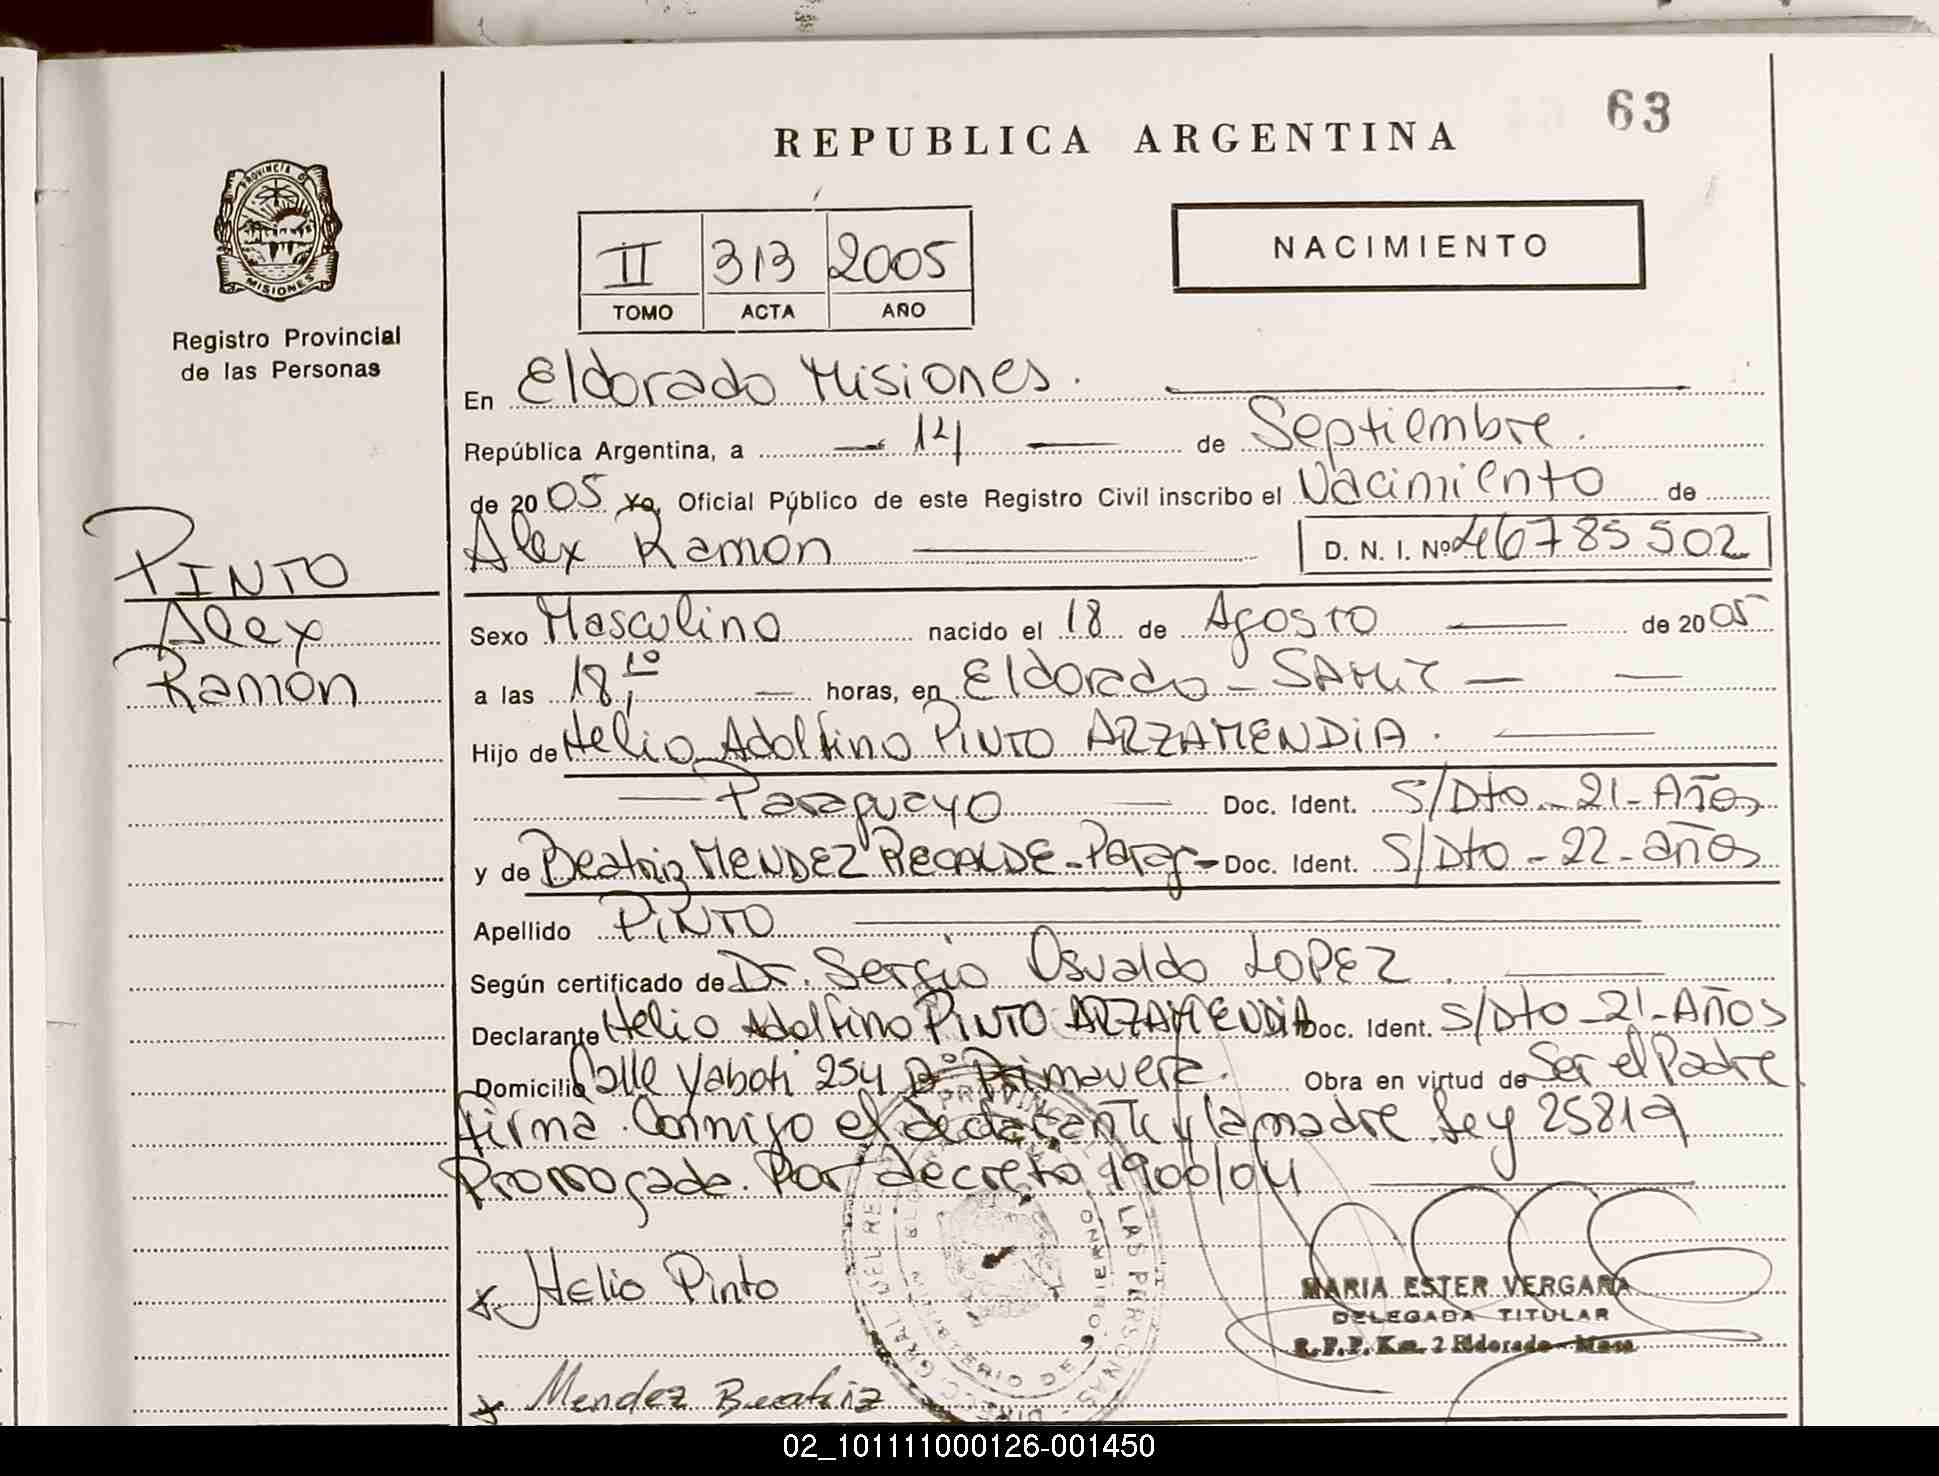 63
REPUBLICA ARGENTINA
PROVINCIA DE
MISIONES
Registro Provincial
de las Personas
II 313 2005
TOMO ACTA AÑO
NACIMIENTO
En Eldorado Misiones.
República Argentina, a 14 de Septiembre.
de 2005 Yo, Oficial Público de este Registro Civil inscribo el Nacimiento de
Alex Ramon D. N. I. Nº 46785502
PINTO
Alex
Ramón
Sexo Masculino nacido el 18 de Agosto de 2005
a las 18,10 horas, en Eldorado - SAMIC
Hijo de Helio Adolfino PINTO ARZAMENDIA.
Paraguayo Doc. Ident. S/Dto - 21 - Años
y de Beatriz MENDEZ RECALDE - Parag - Doc. Ident. S/Dto - 22 - años
Apellido PINTO
Según certificado de Dr. Sergio Osvaldo LOPEZ.
Declarante Helio Adolfino PINTO ARZAMENDIA Doc. Ident. S/Dto - 21 - Años
Domicilio Calle Yaboti 254 Bº Primavera. Obra en virtud de Ser el Padre
firma Conmigo el declarante y la madre Ley 25819
Prorrogada. Por decreto 1900/04
x Helio Pinto
MARIA ESTER VERGARA
DELEGADA TITULAR
R.P.P. Km. 2 Eldorado - Mnes.
x Mendez Beatriz
02_101111000126-001450